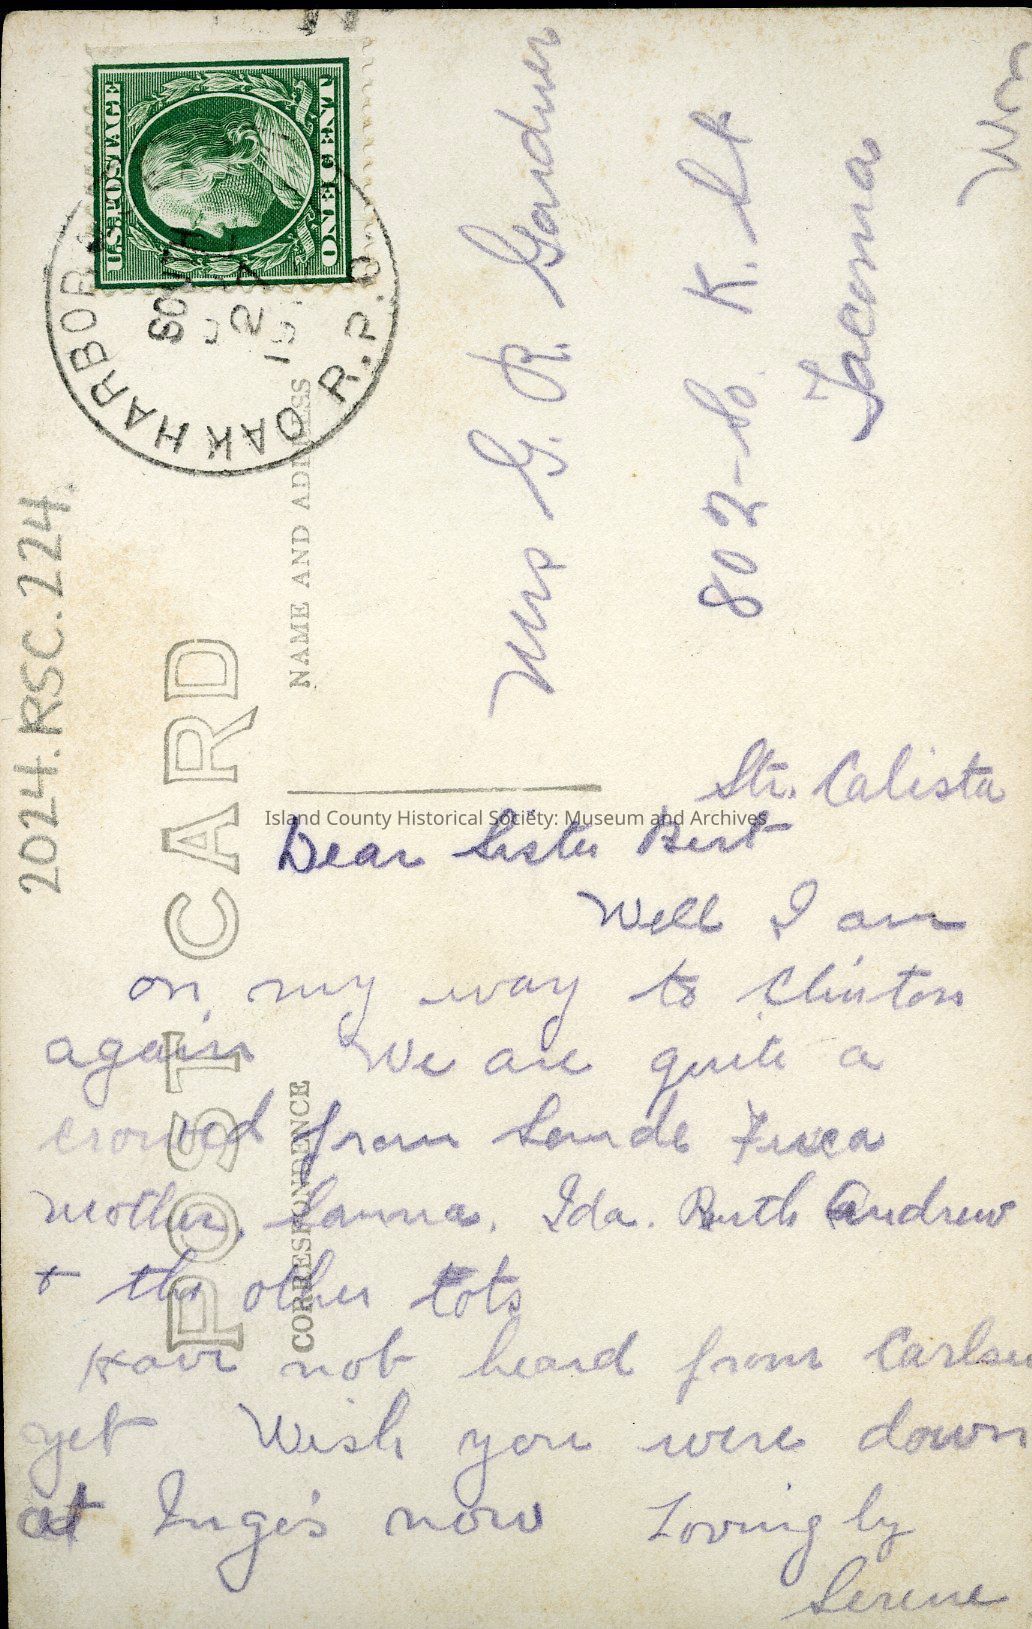 U.S. POSTAGE
ONE CENT
OAK HARBOR
R.P.O.
SOUTH
27
2024.RSC.224.
POST CARD
NAME AND ADDRESS
CORRESPONDENCE
Mrs G. R. Gardner
802-So. K. St
Tacoma
Wn
Island County Historical Society: Museum and Archives
Str. Calista
Dear Sister Bert
Well I am
on my way to Clinton
again We are quite a
crowd from Sande Fuca
mother, Hanna. Ida. Ruth Andrew
+ the other tots
Have not heard from Carlsen
yet Wish you were down
at Inge's now Loving by
Serene